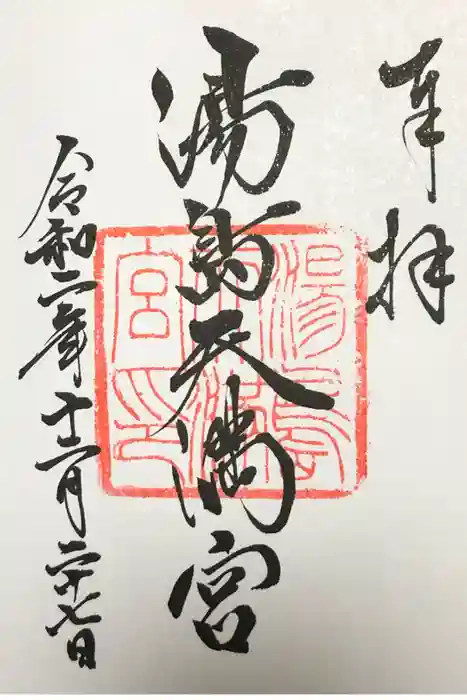 奉拝
湯島天満宮
令和二年十二月二十七日
湯島
天満
宮印